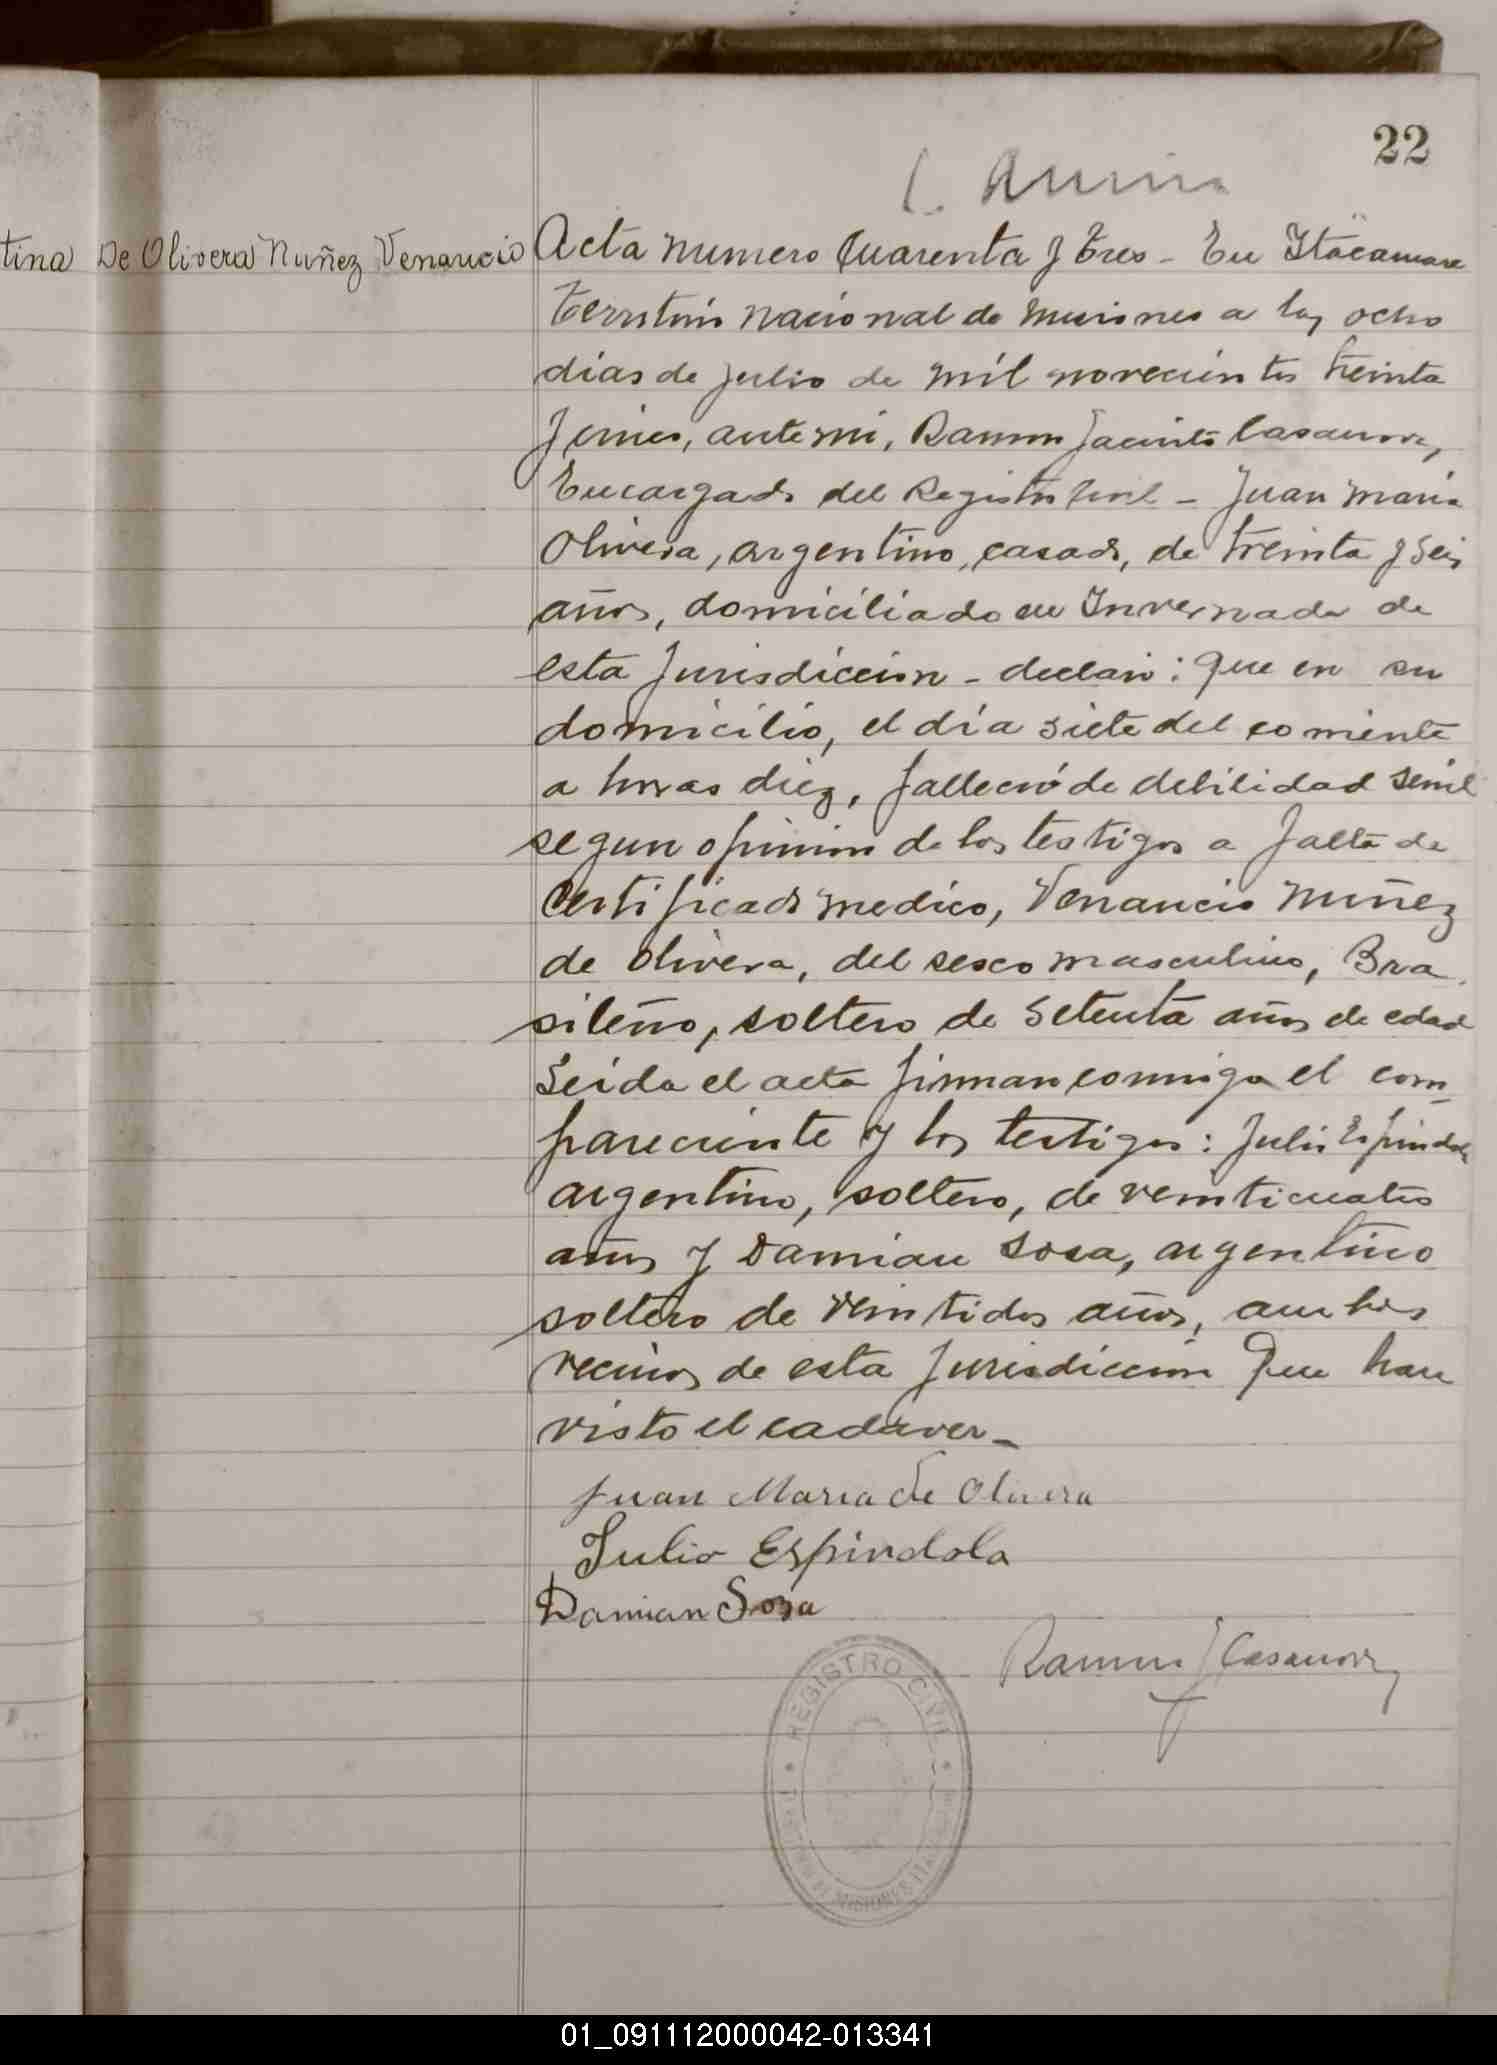 22
tina
De Olivera Nuñez Venancio
Acta numero Cuarenta y Tres - En Itacaruare
Territorio nacional de Misiones a los ocho
dias de Julio de mil novecientos treinta
y cinco, ante mi, Ramon Jacinto Casanova,
Encargado del Registro Civil - Juan Maria
Olivera, argentino, casado, de treinta y seis
años, domiciliado en Invernada de
esta Jurisdiccion - declaró: Que en su
domicilio, el día siete del corriente
a horas diez, falleció de debilidad senil
segun opinion de los testigos a falta de
Certificado medico, Venancio Nuñez
de Olivera, del sexco masculino, Bra
sileño, soltero de Setenta años de edad
Leida el acta firman conmigo el com-
pareciente y los testigos: Julio Espindola
argentino, soltero, de veinticuatro
años y Damian Sosa, argentino
soltero de veintidos años, ambos
vecinos de esta Jurisdiccion Que han
visto el cadaver -
Juan Maria de Olivera
Julio Espindola
Damian Sosa
Ramon J Casanova
REGISTRO CIVIL
MISIONES
01_091112000042-013341